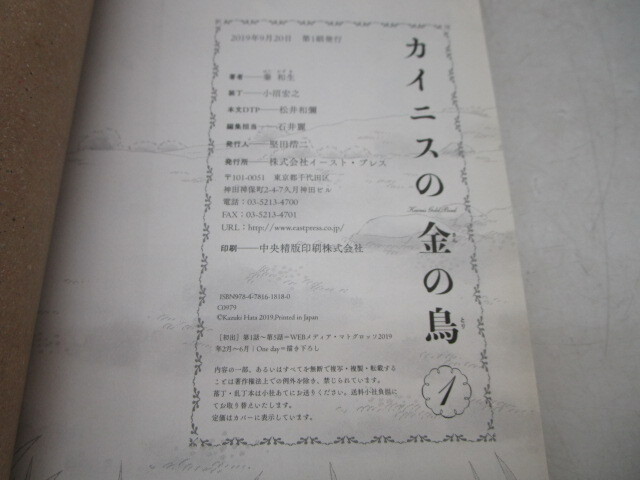 カイニスの金の鳥
きん
とり
Kainis Gold Bird
1
2019年9月20日 第1刷発行
著者――秦 和生
装丁――小沼宏之
本文DTP――松井和彌
編集担当――石井麗
発行人――堅田浩二
発行所――株式会社イースト・プレス
〒101-0051 東京都千代田区
神田神保町2-4-7久月神田ビル
電話:03-5213-4700
FAX:03-5213-4701
URL:http://www.eastpress.co.jp/
印刷――中央精版印刷株式会社
ISBN978-4-7816-1818-0
C0979
©Kazuki Hata 2019,Printed in Japan
[初出]第1話〜第5話=WEBメディア・マトグロッソ2019
年2月〜6月|One day=描き下ろし
内容の一部、あるいはすべてを無断で複写・複製・転載する
ことは著作権法上での例外を除き、禁じられています。
落丁・乱丁本は小社あてにお送りください。送料小社負担に
てお取り替えいたします。
定価はカバーに表示しています。